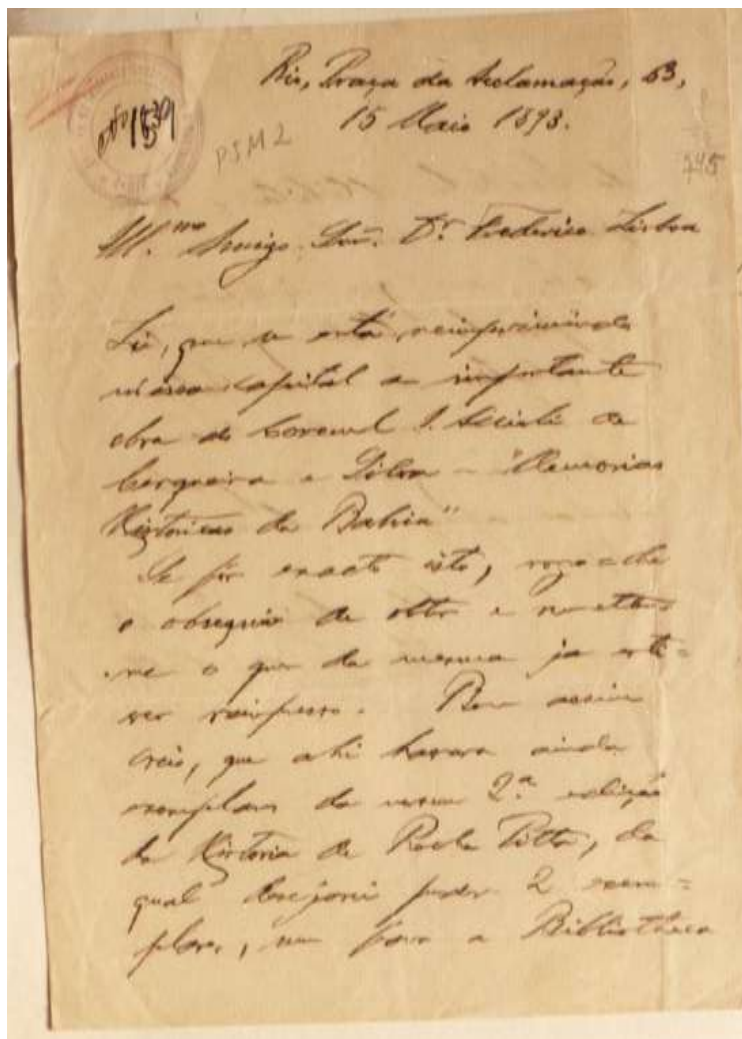 Rio, Praça da Acclamação, 63,
15 Maio 1893.
PSM2
745
Ill.mo Amigo Snr. Dr. Frederico Lisboa
Li, que se está reimprimindo
nessa capital a importante
obra do Coronel I. Accioli de
Cerqueira e Silva – "Memorias
Historicas da Bahia"
Se fôr exacto isto, rogo-lhe
o obsequio de obter e remetter-
me o que da mesma já esti-
ver reimpresso. Bem assim
creio, que ahi haverá ainda
exemplares da 2.ª edição
da Historia de Rocha Pitta, da
qual desejarei 2 exem-
plares, um para a Bibliotheca